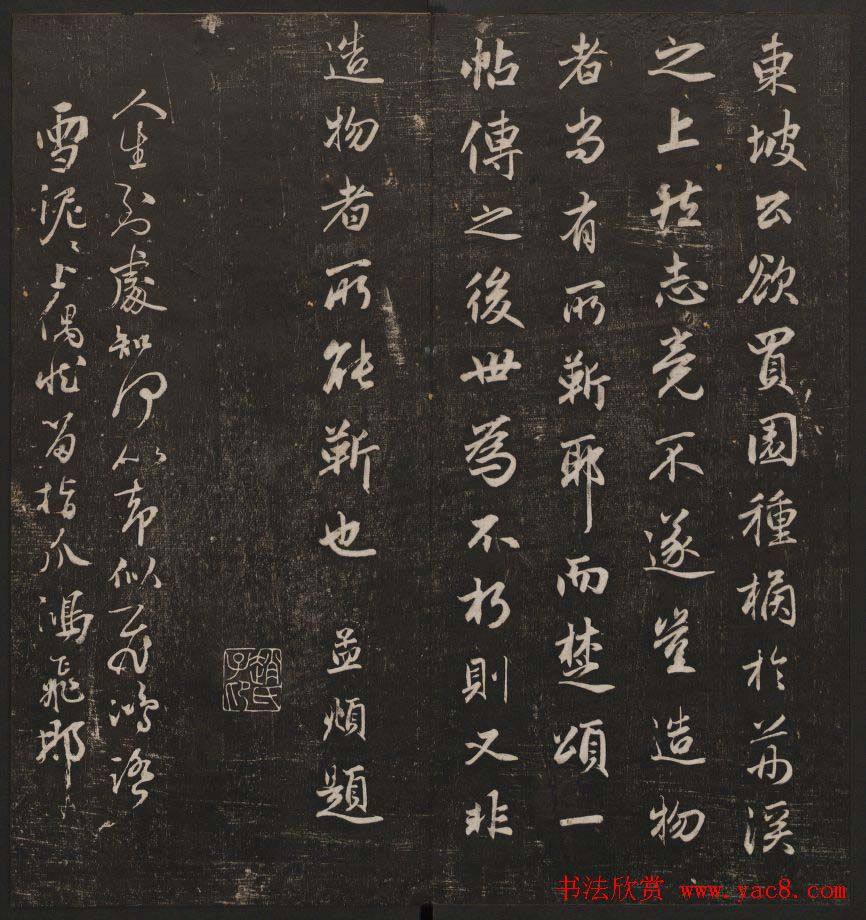 東坡公欲買園種橘於荊溪
之上然志竟不遂豈造物
者尚有所靳耶而楚頌一
帖傳之後世為不朽則又非
造物者所能靳也 孟頫題
趙氏子昂
人生到處知何以却似飛鴻踏
雪泥々上偶然留指爪鴻飛那
书法欣赏 www.yac8.com